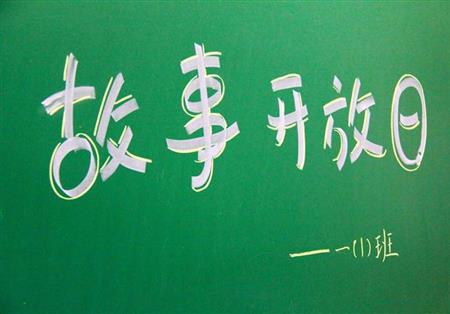 故事开放日
——一(1)班